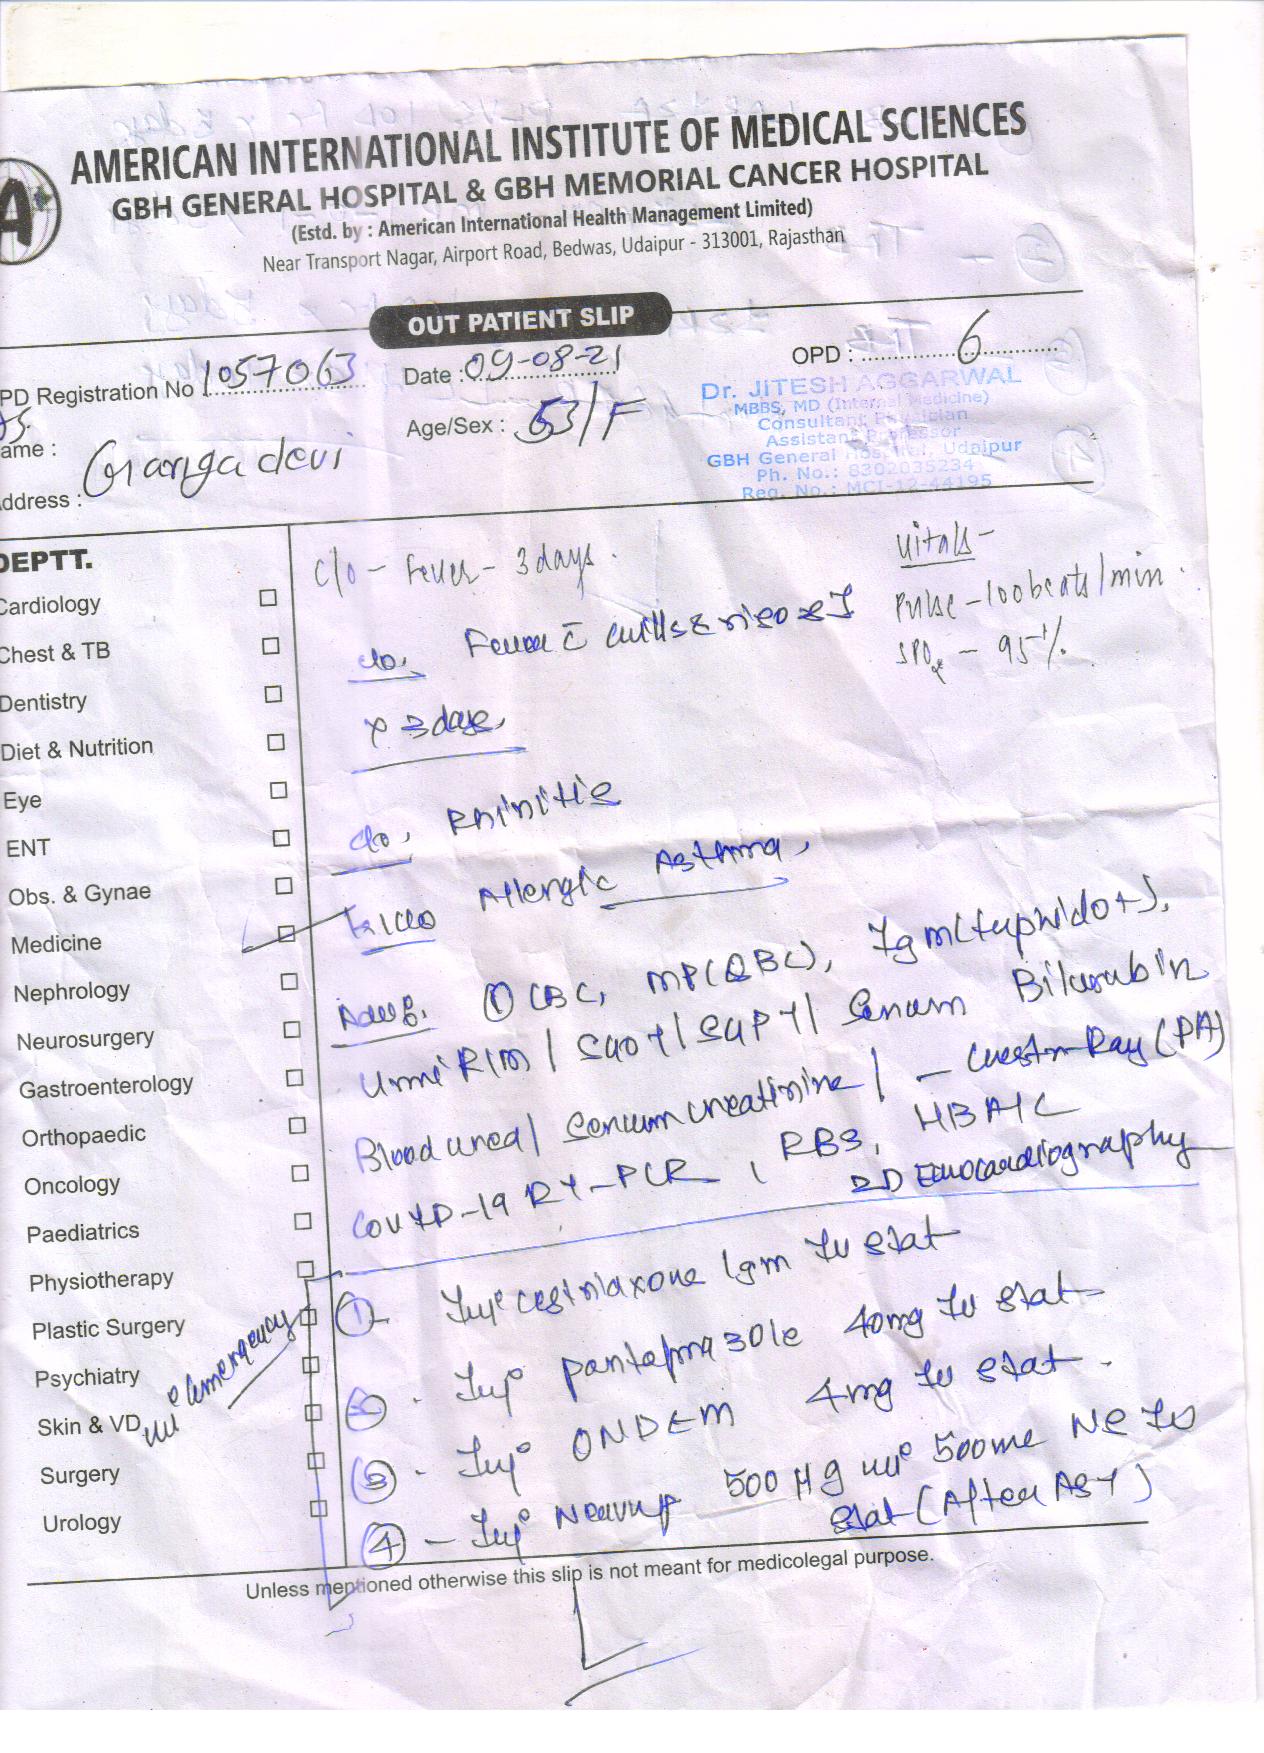 AMERICAN INTERNATIONAL INSTITUTE OF MEDICAL SCIENCES
GBH GENERAL HOSPITAL & GBH MEMORIAL CANCER HOSPITAL
(Estd. by : American International Health Management Limited)
Near Transport Nagar, Airport Road, Bedwas, Udaipur - 313001, Rajasthan
OUT PATIENT SLIP
PD Registration No 1057063 Date : 09-08-21 OPD : 6
ame : Age/Sex : 53/F
Ganga devi
ddress :
Dr. JITESH AGGARWAL
MBBS, MD (Internal Medicine)
Consultant Physician
Assistant Professor
GBH General Hospital, Udaipur
Ph. No.: 8302035234
Reg. No.: MCI-12-44195
DEPTT.
Cardiology
Chest & TB
Dentistry
Diet & Nutrition
Eye
ENT
Obs. & Gynae
Medicine
Nephrology
Neurosurgery
Gastroenterology
Orthopaedic
Oncology
Paediatrics
Physiotherapy
Plastic Surgery
Psychiatry
Skin & VD
Surgery
Urology
emergency
c/o - Fever - 3 days.
Vitals -
Pulse - 100 beats/min.
SPO2 - 95%
c/o, Fever c̄ chills &
x 3 days,
c/o, Rhinitis
K/c/o Allergic Asthma,
Adv. ① CBC, MP(QBC), IgM(typhidot),
Urine R/M / SGOT / SGPT / Serum Bilirubin
Blood urea / Serum creatinine / - Chest X-Ray (PA)
COVID-19 RT-PCR, RBS, HBA1C
2D Echocardiography
① - Inj. ceftriaxone 1gm IV stat
② - Inj. pantoprazole 40mg IV stat
③ - Inj. ONDEM 4mg IV stat.
④ - Inj. 500 500ml NS IV
stat (After AST)
Unless mentioned otherwise this slip is not meant for medicolegal purpose.